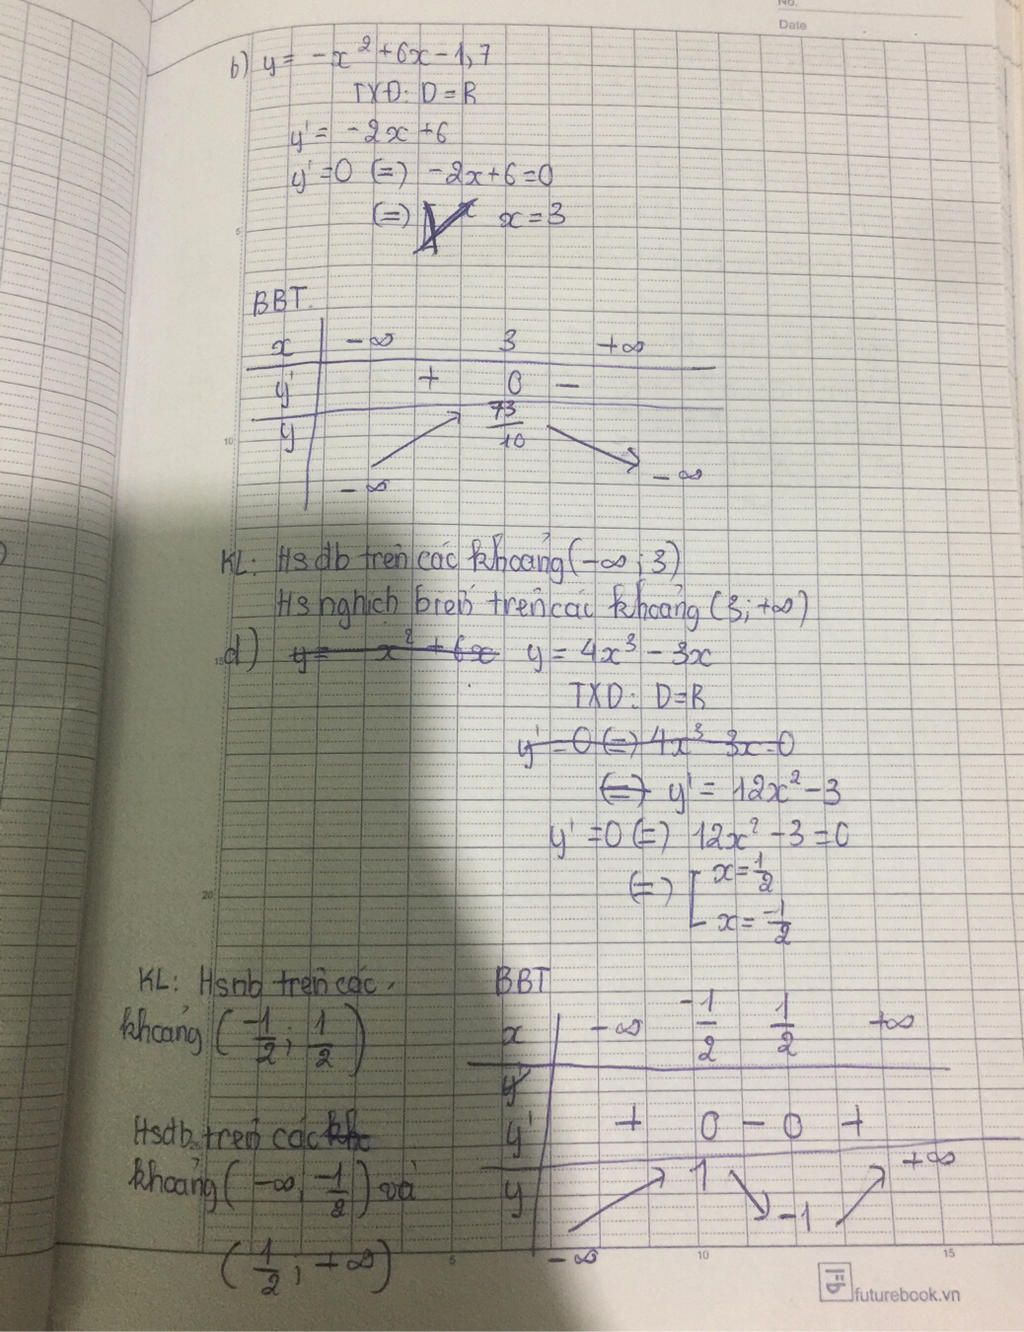 No.
Date
b) y = -x² + 6x - 1,7
TXD: D = R
y' = -2x + 6
y' = 0 (=) -2x + 6 = 0
(=) x = 3
5
BBT.
x -∞ 3 +∞
y' + 0 -
y 73/10
10
-∞ -∞
KL: Hs đb trên các khoảng (-∞; 3)
Hs nghịch biến trên các khoảng (3; +∞)
15
d) y = - x² + 6x y = 4x³ - 3x
TXD: D = R
y' = 0 (=) 4x³ 3x = 0
(=) y' = 12x² - 3
y' = 0 (=) 12x² - 3 = 0
20
(=) [ x = 1/2
x = -1/2
KL: Hsnb trên các
khoảng (-1/2; 1/2)
Hsđb trên các kho
khoảng (-∞, -1/2) và
(1/2; +∞)
BBT
x -∞ -1/2 1/2 +∞
y'
y' + 0 - 0 +
y 1 +∞
-1
-∞
5 10 15
futurebook.vn